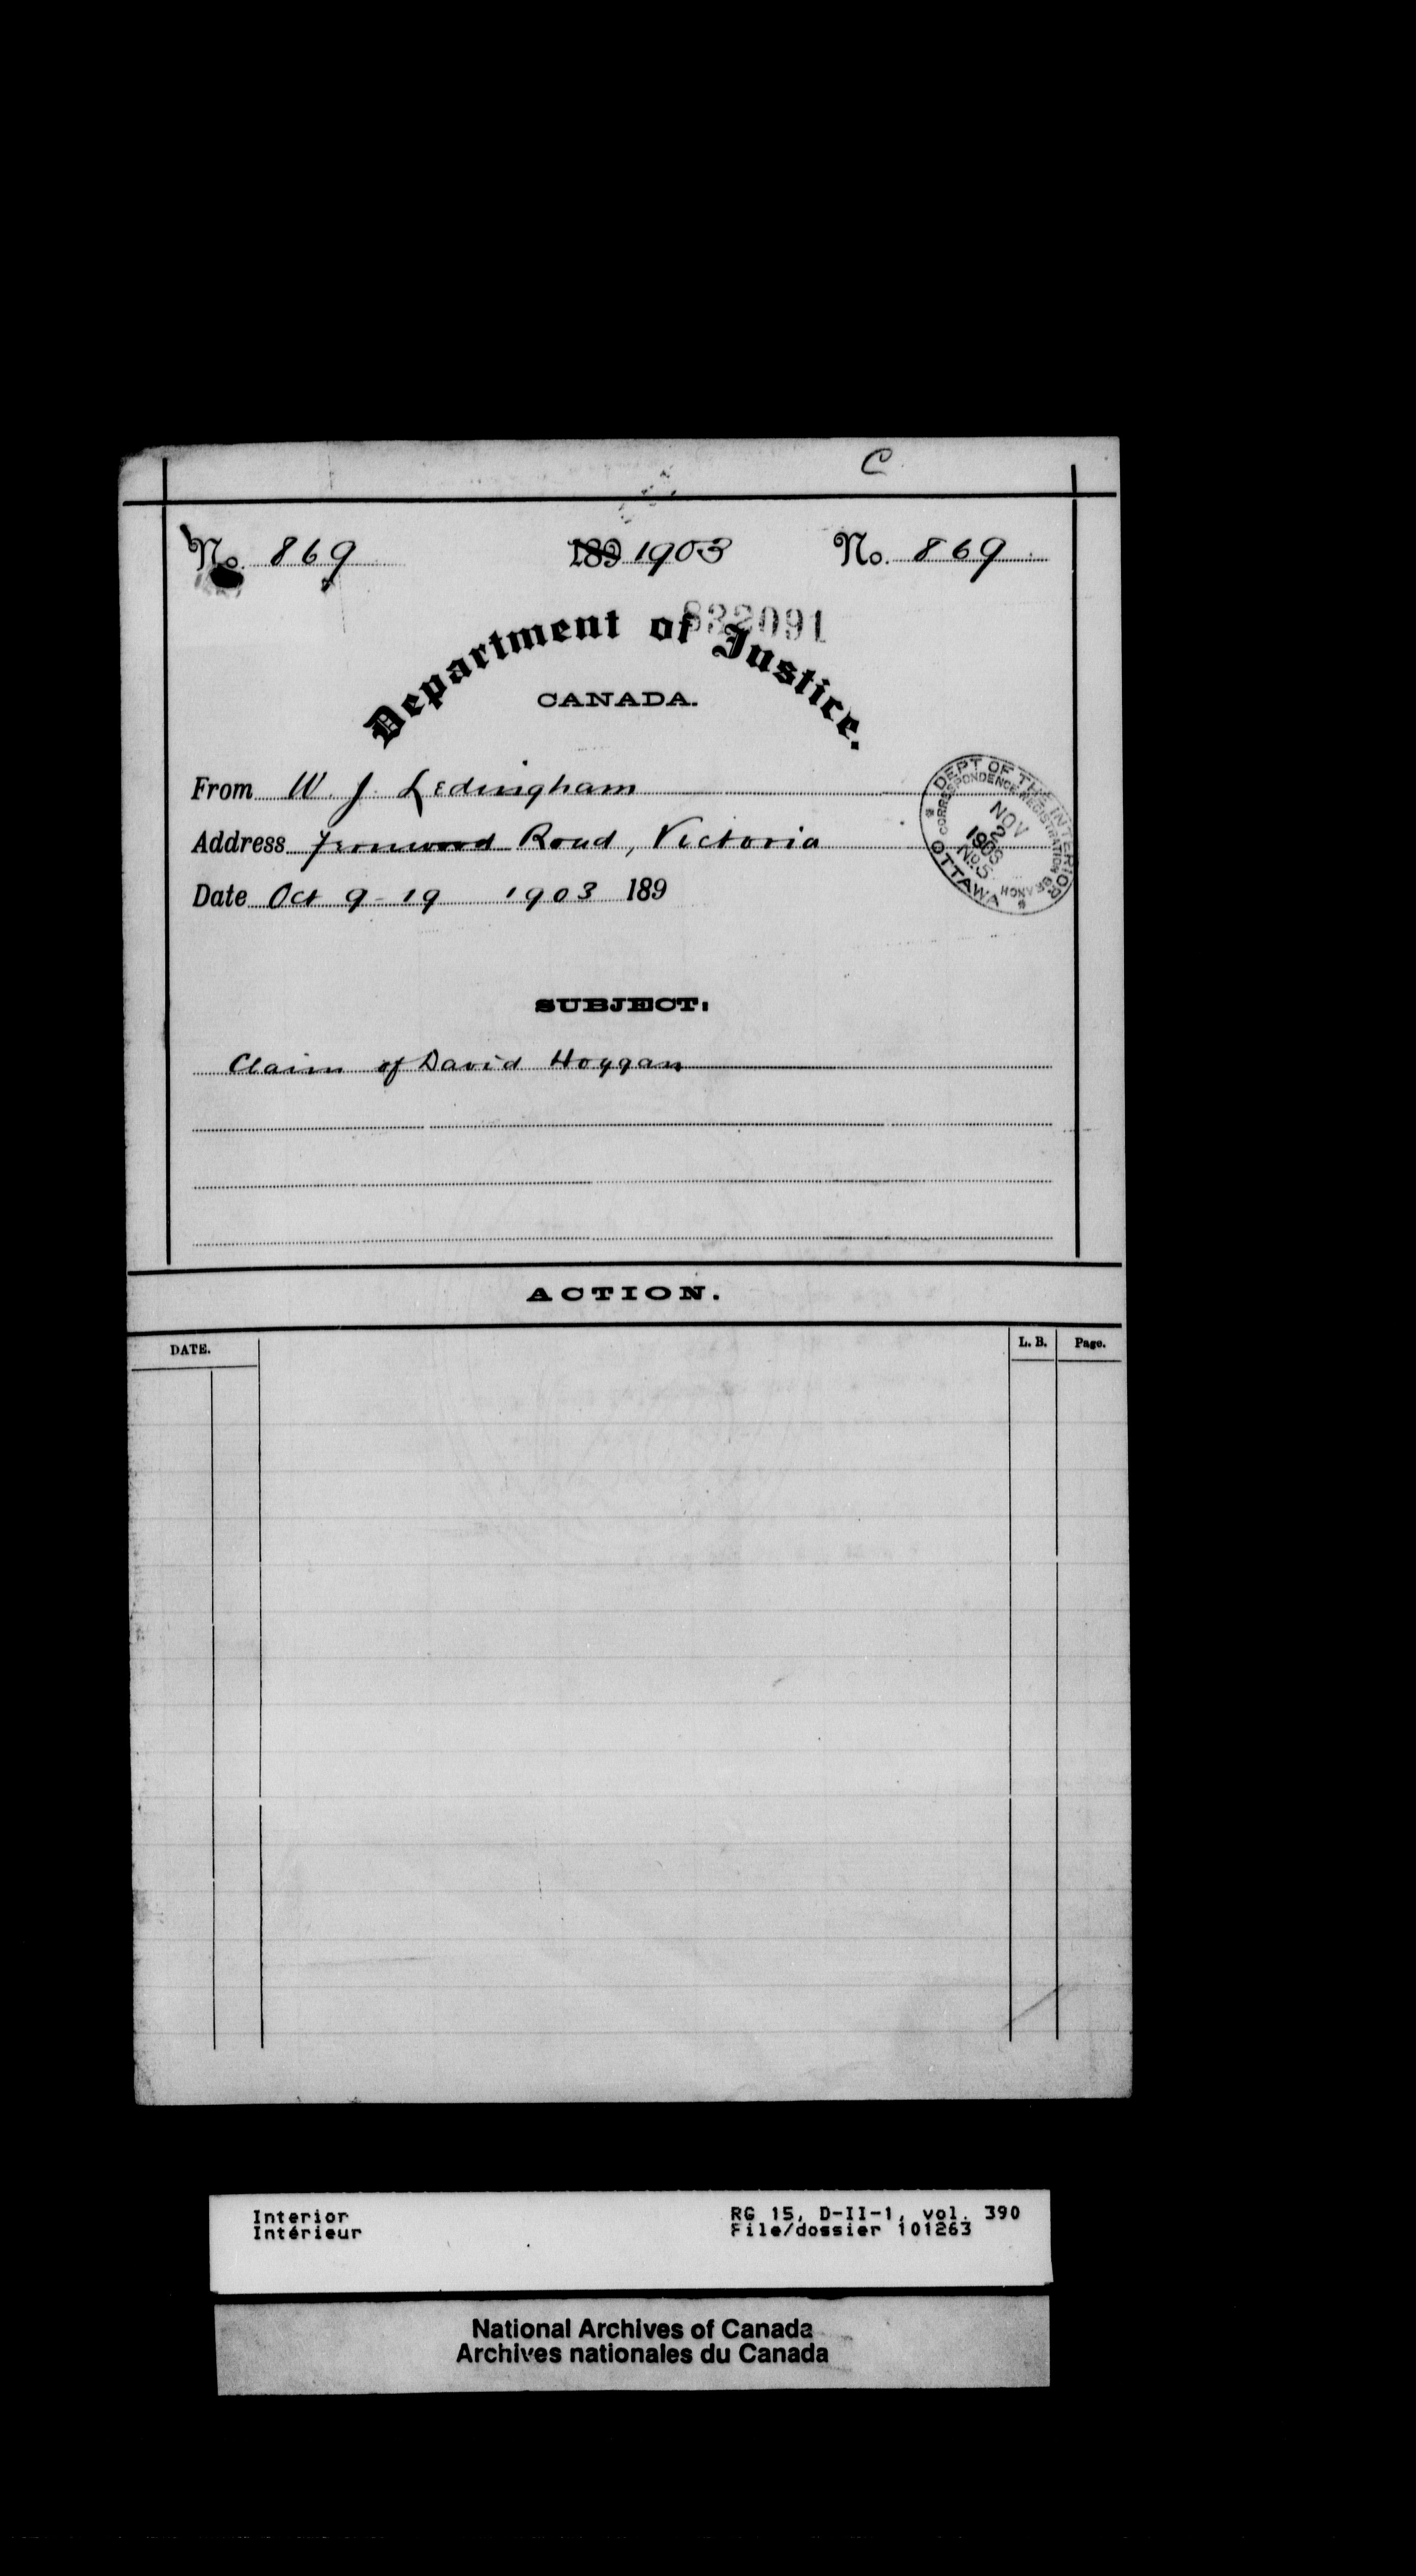 C
No. 869 189 1903 No. 869
832091
Department of Justice.
CANADA.
From W. J. Ledingham
Address Road, Victoria
Date Oct 9-19 1903 189
DEPT OF THE INTERIOR
CORRESPONDENCE REGISTRATION BRANCH
NOV
2
1903
No. 5
OTTAWA
SUBJECT:
Claim of David Hoggan
ACTION.
DATE. L. B. Page.
Interior RG 15, D-II-1, vol. 390
Intérieur File/dossier 101263
National Archives of Canada
Archives nationales du Canada